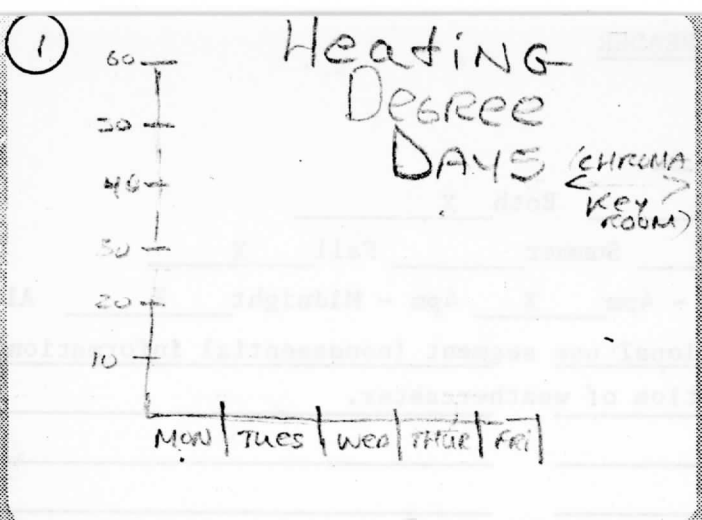 1
Heating
Degree
Days
(CHROMA
Key
ROOM)
60
50
40
30
20
10
MON TUES WED THUR FRI